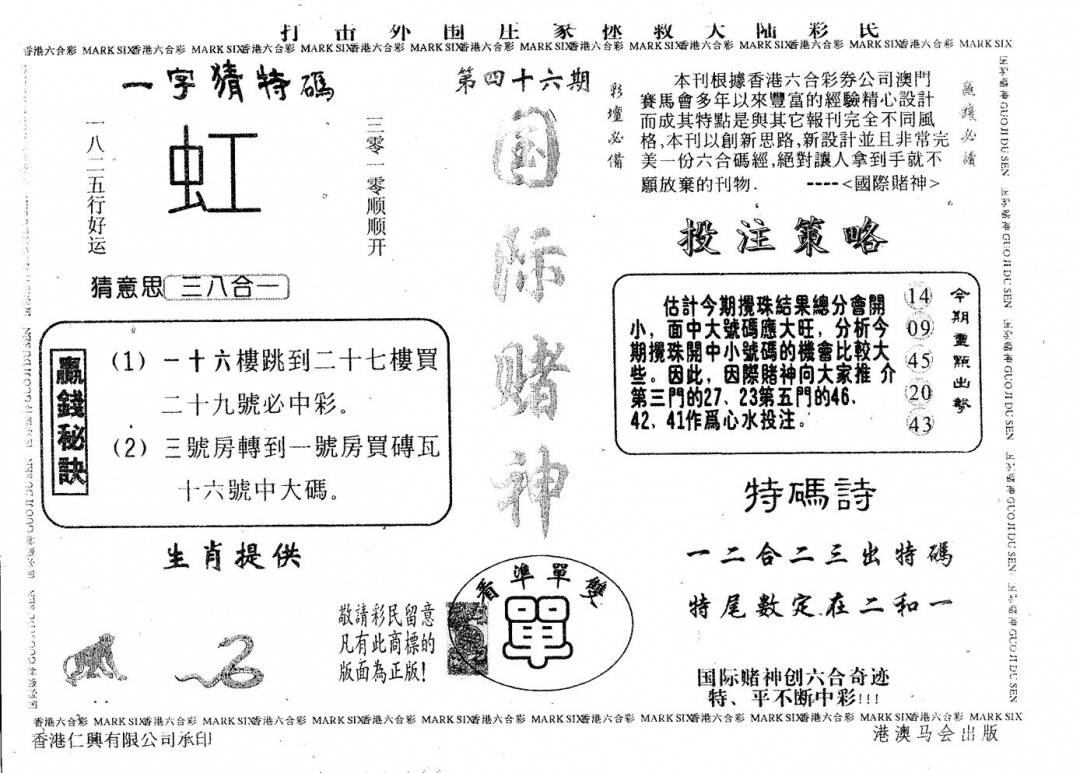 打击外围庄家拯救大陆彩民
香港六合彩 MARK SIX香港六合彩 MARK SIX香港六合彩 MARK SIX香港六合彩 MARK SIX香港六合彩 MARK SIX香港六合彩 MARK SIX香港六合彩 MARK SIX香港六合彩 MARK SIX香港六合彩 MARK SIX
一字猜特碼
一八二五行好运
虹
三零一零顺顺开
猜意思 三八合一
贏錢秘訣
(1) 一十六樓跳到二十七樓買
二十九號必中彩。
(2) 三號房轉到一號房買磚瓦
十六號中大碼。
生肖提供
第四十六期
国际赌神
彩壇必備
本刊根據香港六合彩券公司澳門
賽馬會多年以來豐富的經驗精心設計
而成其特點是與其它報刊完全不同風
格,本刊以創新思路,新設計並且非常完
美一份六合碼經,絕對讓人拿到手就不
願放棄的刊物. ----<國際賭神>
必讀
投注策略
估計今期攪珠結果總分會開
小，面中大號碼應大旺，分析今
期攪珠開中小號碼的機會比較大
些。因此，因際賭神向大家推 介
第三門的27、23第五門的46、
42、41作爲心水投注。
14
09
45
20
43
今期重點出擊
特碼詩
一二合二三出特碼
特尾數定在二和一
敬請彩民留意
凡有此商標的
版面為正版!
看準單雙
單
国际赌神创六合奇迹
特、平不断中彩!!!
香港六合彩 MARK SIX香港六合彩 MARK SIX香港六合彩 MARK SIX香港六合彩 MARK SIX香港六合彩 MARK SIX香港六合彩 MARK SIX香港六合彩 MARK SIX香港六合彩 MARK SIX香港六合彩 MARK SIX
香港仁興有限公司承印
港澳马会出版